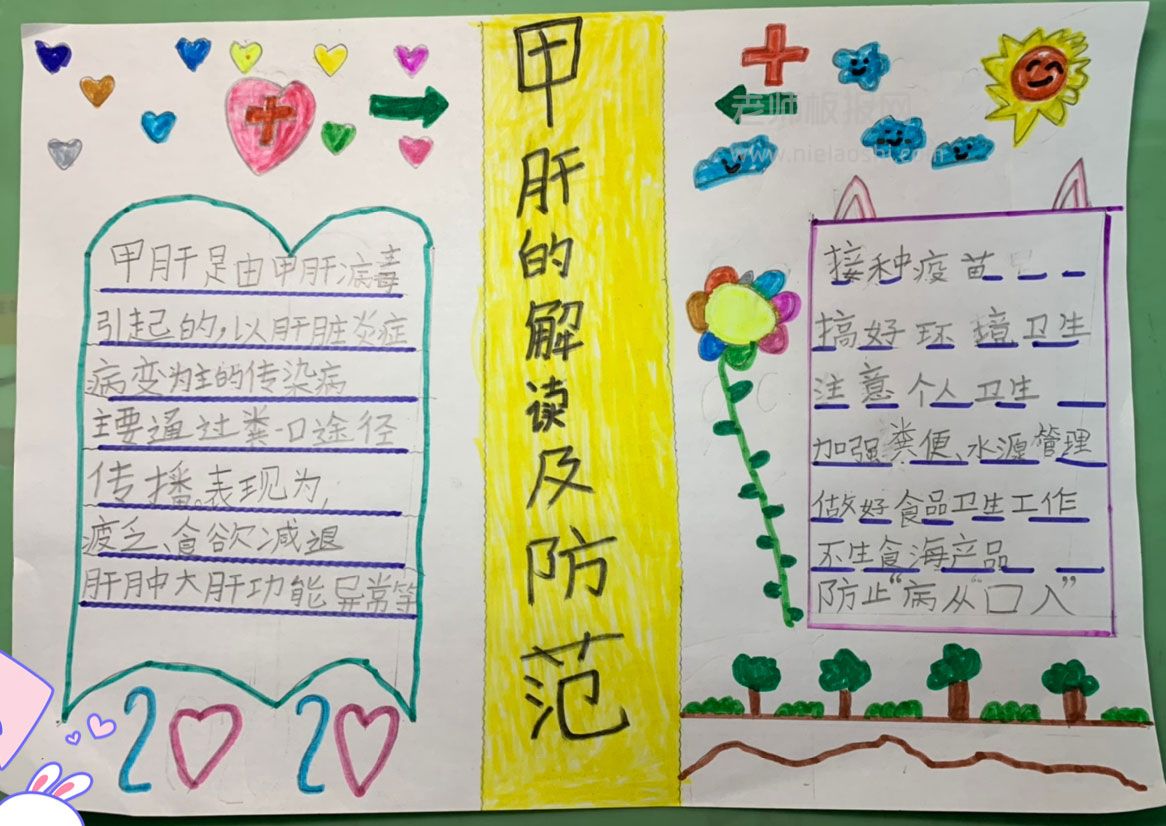 甲肝的解读及防范
甲肝是由甲肝病毒
引起的,以肝脏炎症
病变为主的传染病
主要通过粪口途径
传播。表现为,
疲乏、食欲减退
肝肿大肝功能异常等
2020
接种疫苗
搞好环境卫生
注意个人卫生
加强粪便、水源管理
做好食品卫生工作
不生食海产品
防止“病从“口入”
老师板报网
www.nielaoshi.com